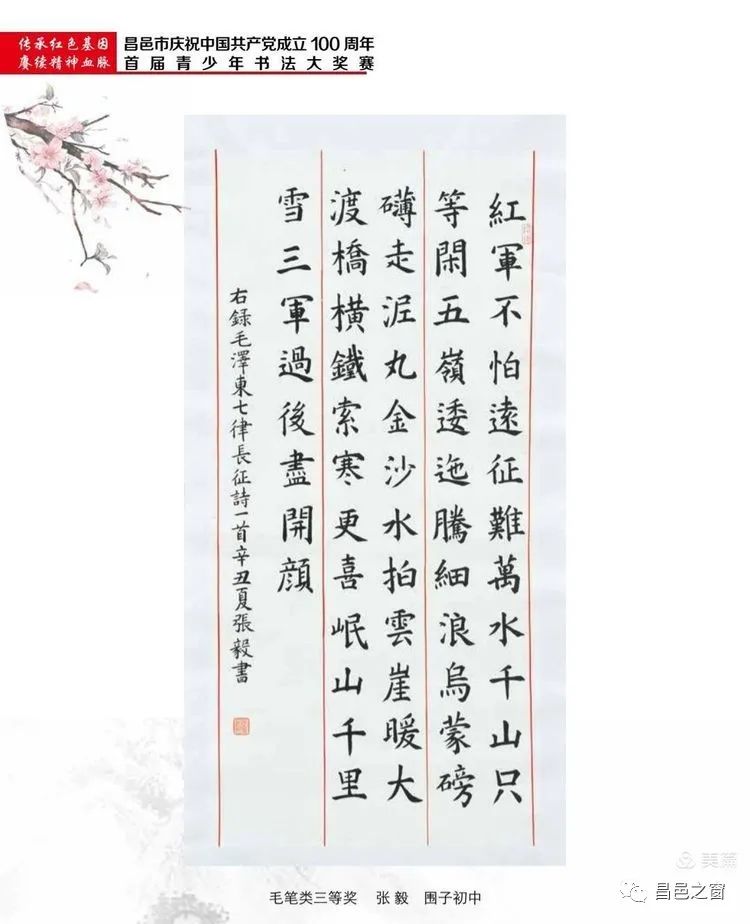 传承红色基因
赓续精神血脉
昌邑市庆祝中国共产党成立100周年
首届青少年书法大奖赛
紅軍不怕遠征難萬水千山只
等閑五嶺逶迤騰細浪烏蒙磅
礴走泥丸金沙水拍雲崖暖大
渡橋橫鐵索寒更喜岷山千里
雪三軍過後盡開顏
右錄毛澤東七律長征詩一首辛丑夏張毅書
毛笔类三等奖 张毅 围子初中
美篇
昌邑之窗